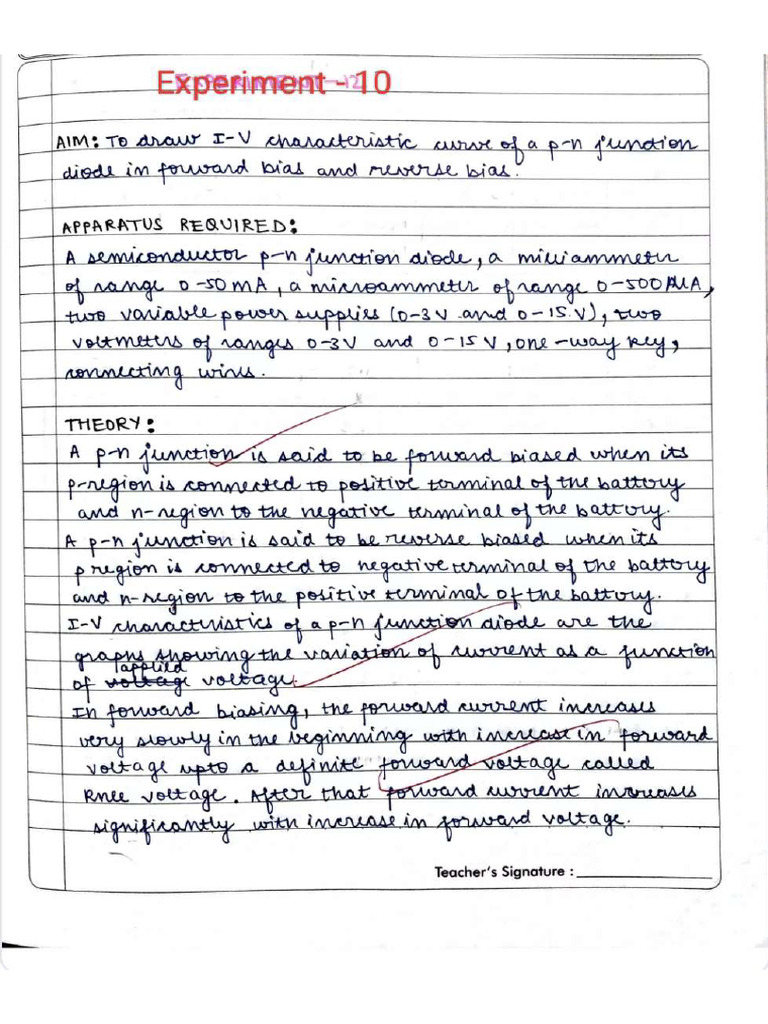 Experiment - 10
AIM: To draw I-V characteristic curve of a p-n junction
diode in forward bias and reverse bias.
APPARATUS REQUIRED:
A semiconductor p-n junction diode, a milliammeter
of range 0-50 mA, a microammeter of range 0-500 μA,
two variable power supplies (0-3 V and 0-15 V), two
voltmeters of ranges 0-3V and 0-15 V, one-way key,
connecting wires.
THEORY:
A p-n junction is said to be forward biased when its
p-region is connected to positive terminal of the battery
and n-region to the negative terminal of the battery.
A p-n junction is said to be reverse biased when its
p region is connected to negative terminal of the battery
and n-region to the positive terminal of the battery.
I-V characteristics of a p-n junction diode are the
graphs showing the variation of current as a function
of applied voltage.
In forward biasing, the forward current increases
very slowly in the beginning with increase in forward
voltage upto a definite forward voltage called
Knee voltage. After that forward current increases
significantly with increase in forward voltage.
Teacher's Signature :